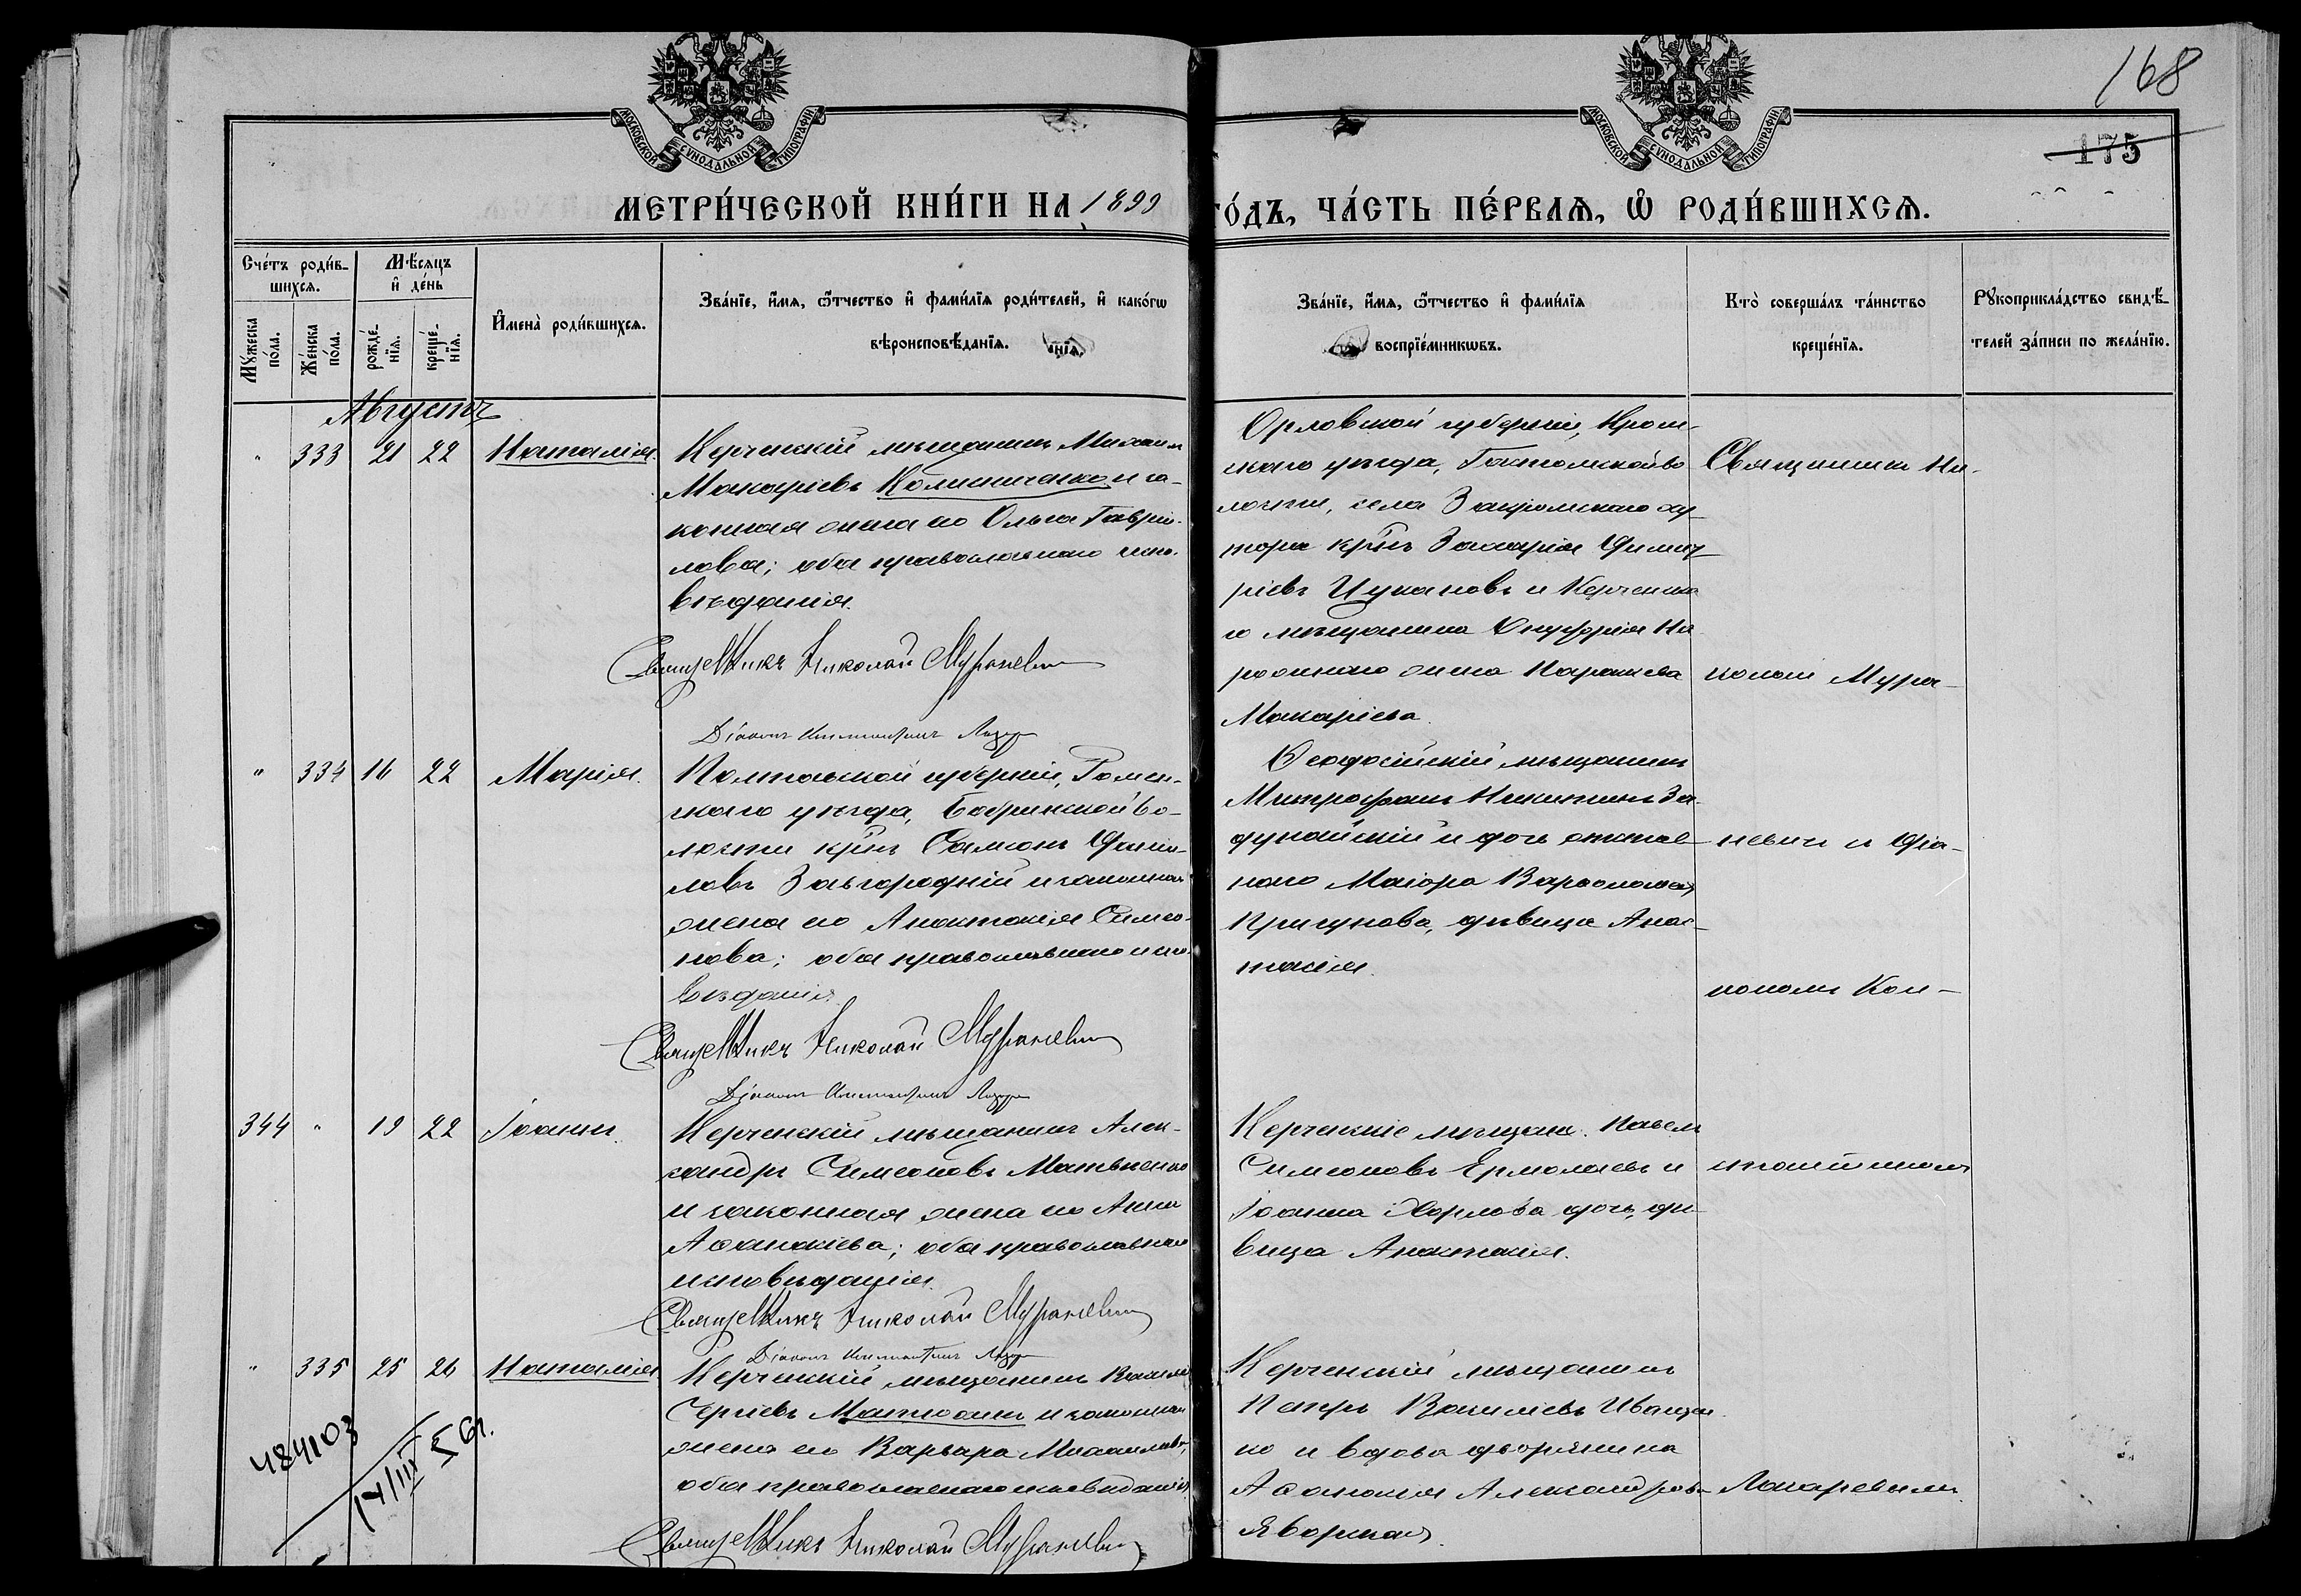 168
175
МОСКОВСКОЙ СѴНОДАЛЬНОЙ ТИПОГРАФІИ.
МОСКОВСКОЙ СѴНОДАЛЬНОЙ ТИПОГРАФІИ.
МЕТРИ́ЧЕСКОЙ КНИ́ГИ НА 1899 ГО́ДЪ, ЧА́СТЬ ПЕ́РВАѦ, Ѡ РОДИ́ВШИХСѦ.
Сче́тъ роди́в-
шихсѧ.
Мꙋ́жеска по́ла.
Же́нска по́ла.
Мѣ́сѧцъ и҆ де́нь
рожде́-
нїѧ.
креще́-
нїѧ.
И҆мена̀ роди́вшихсѧ.
Зва́нїе, и҆́мѧ, ѻ҆́тчество и҆ фами́лїѧ роди́телей, и҆ како́гѡ
вѣроисповѣ́данїѧ.
Зва́нїе, и҆́мѧ, ѻ҆́тчество и҆ фами́лїѧ
воспрїе́мникѡвъ.
Кто̀ соверша́лъ та́инство
креще́нїѧ.
Рꙋкоприкла́дство свидѣ́-
телей за́писи по жела́нїю.
Августъ
" 333 21 22 Наталія
Керченскій мѣщанинъ Михаилъ
Макаріевъ Колисниченко и за-
конная жена его Ольга Гаврiи-
лова; оба православнаго испо-
вѣданія.
Священникъ Николай Мураневич
Діаконъ Константинъ
Орловской губерніи, Кром-
скаго уѣзда, Гостомской во
лости, села Закромскаго ху
тора кр-нъ Захарія Дмит
ріевъ Цукановъ и Керченска
го мѣщанина Онуфрія На
роднаго жена Параскева
Макаріева.
Священникъ Ни-
колай Мура-
" 334 16 22 Марія.
Полтавской губерніи, Ромен-
скаго уѣзда, Бобринской во-
лости кр-нъ Самсонъ Дании-
ловъ Завгородній и законная
жена его Анастасія Симео-
нова; оба православнаго испо-
вѣданія
Священникъ Николай Мураневич
Діаконъ Константинъ
Ѳеодосійскій мѣщанинъ
Митрофанъ Никитинъ За-
дунайскій и дочь отстав-
ного Маіора Варѳоломея
Пригунова, дѣвица Анас-
тасія.
невичъ и Діа-
кономъ Кон-
344 " 19 22 Іоаннъ.
Керченскій мѣщанинъ Алек-
сандръ Симеоновъ Матвѣенко
и законная жена его Анна
Аѳанасіева; оба православнаго
исповѣданія.
Священникъ Николай Мураневич
Діаконъ Константинъ
Керченскіе мѣщане: Павелъ
Симеоновъ Ермолаевъ и
Іоанна Хорлова дочь, дѣ
вица Анастасія.
стантиномъ
" 335 25 26 Наталія
Керченскій мѣщанинъ Василій
Сергіевъ Матюхинъ и законная
жена его Варвара Михаилова;
оба православнаго исповѣданія
Священникъ Николай Мураневич
Керченскій мѣщанинъ
Петръ Василіевъ Иванчен
ко и вдова дворянина
Аѳанасія Александрова
Яворская.
Лазаревымъ.
484103
14/III 56г.